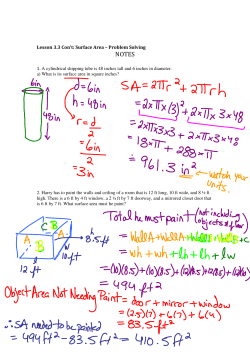 Lesson 2.3 Con't: Surface Area – Problem Solving
NOTES
1. A cylindrical shipping tube is 48 inches tall and 6 inches in diameter.
a) What is its surface area in square inches?
6in
48in
d=6in
h=48in
r=d
2
=6in
2
=3in
SA=2πr²+2πrh
=2×π×(3)²+2×π×3×48
=2×π×3×3+2×π×3×48
=18×π+288×π
=961.3 in²
watch your units.
2. Harry has to paint the walls and ceiling of a room that is 12 ft long, 10 ft wide, and 8 ½ ft
high. There is a 6 ft by 4 ft window, a 2 ½ ft by 7 ft doorway, and a mirrored closet door that
is 6 ft by 7 ft. What surface area must he paint?
C
B
A
A
B
h
8.5ft
w
10ft
l
12 ft
Total he must paint (not including objects after)
=Wall A+Wall A+Wall B+Wall B+C
=wh+wh+lh+lh+lw
=494ft²
Object Area Not Needing Paint=door+mirror+window
=(2.5)(7)+6(7)+6(4)
=83.5ft²
∴SA needed to be painted
=494ft²-83.5ft²=410.5ft²